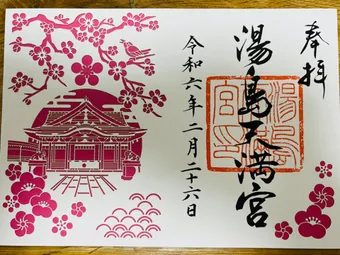 奉拝
湯島天満宮
令和六年二月二十六日